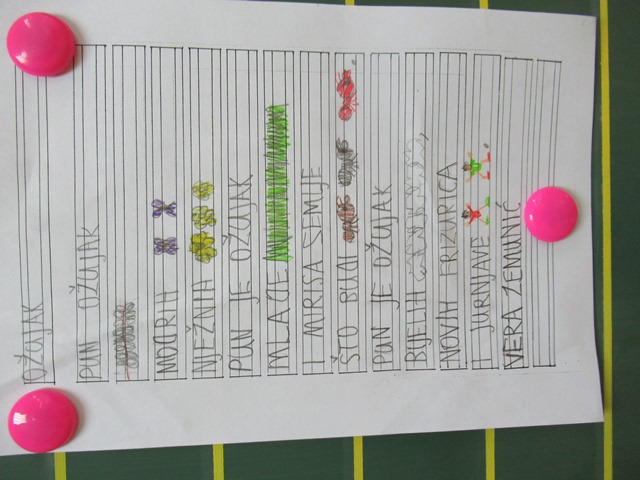 OŽUJAK
PUN OŽUJAK
MODRIH
NJEŽNIH
PUN JE OŽUJAK
MLADE
I MIRISA ŠEMUJE
ŠTO BUDI
PUN JE OŽUJAK
BIJELIH
NOVIH FRIZURICA
I JURNJAVE
VERA ZEMUNIĆ